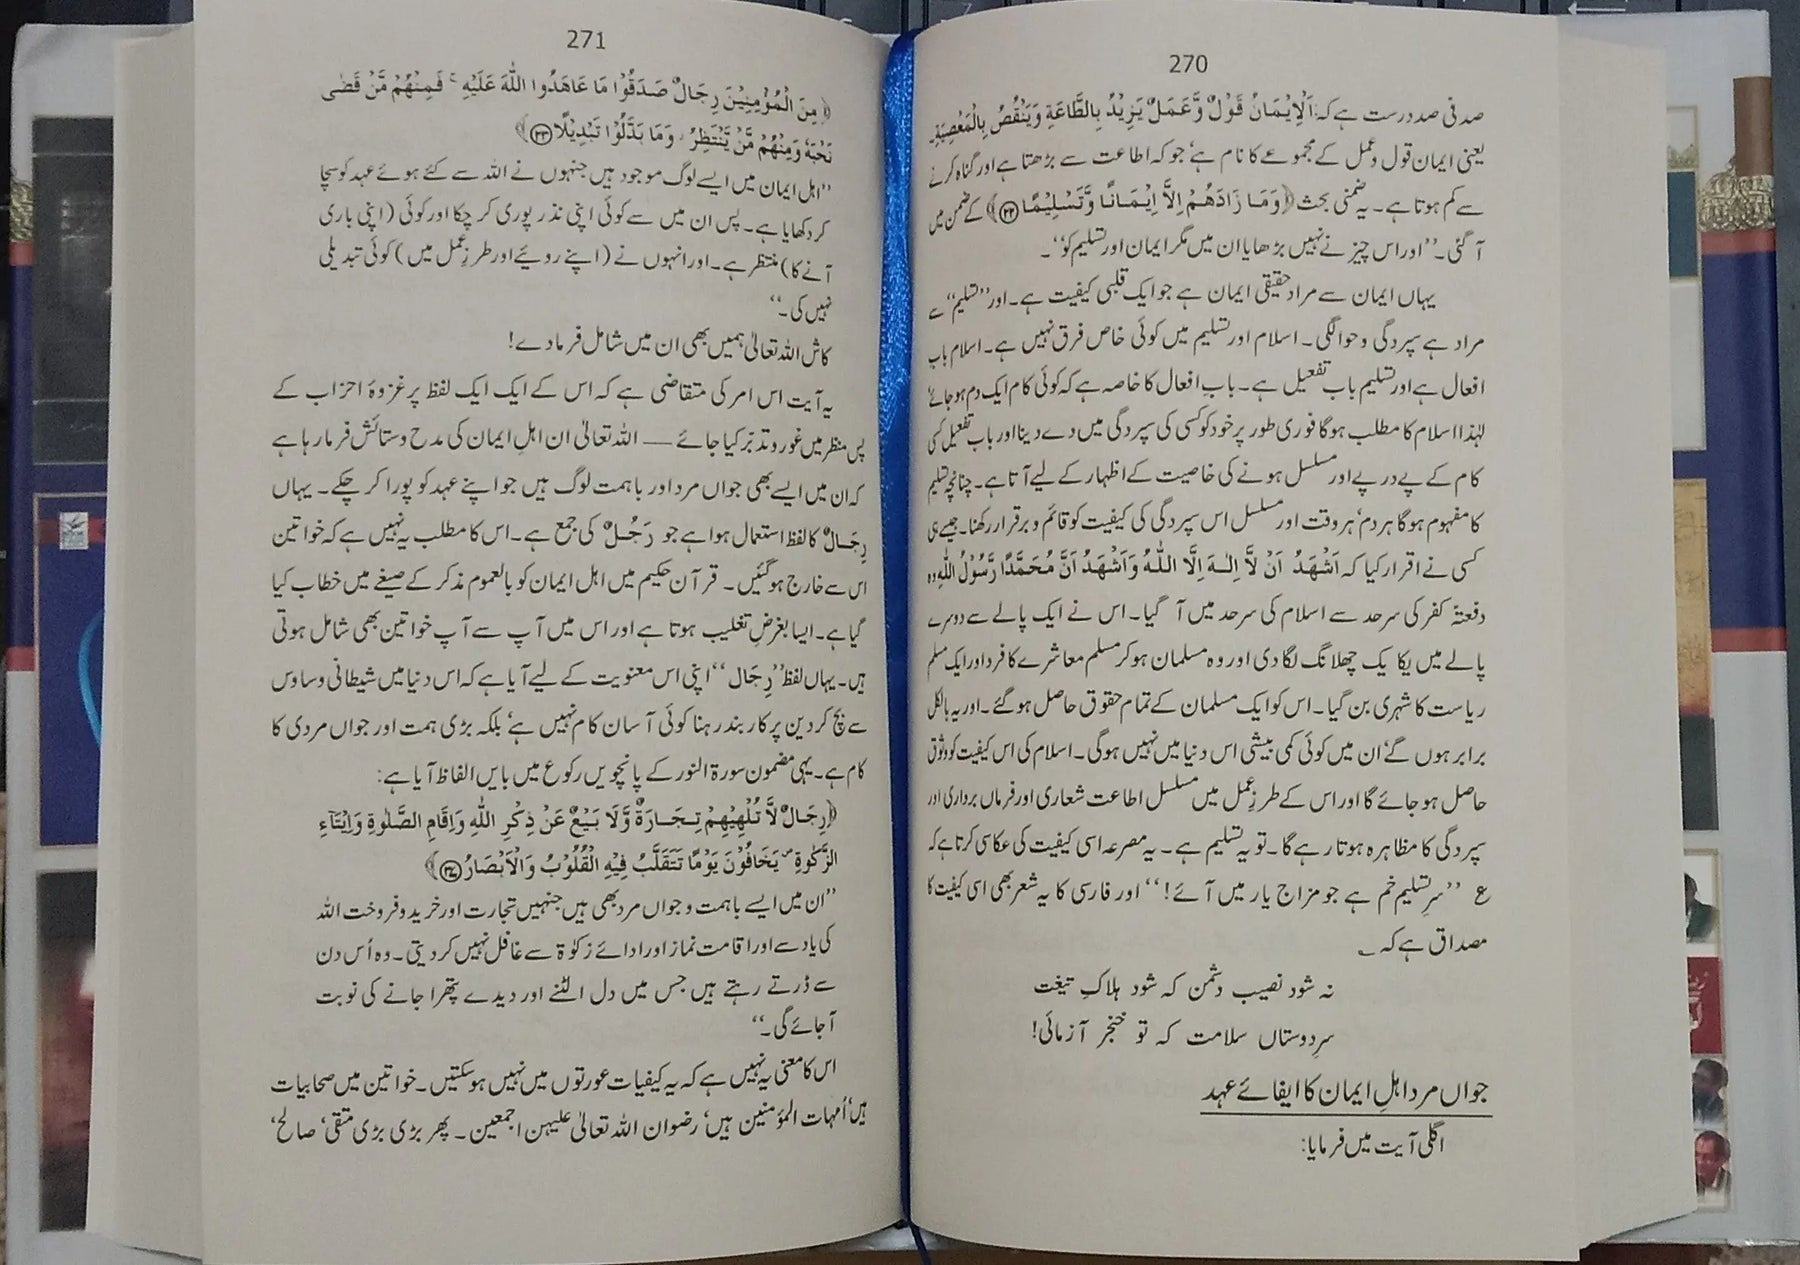 270
صد فی صد درست ہے کہ: اَلْاِیْمَانُ قَوْلٌ وَّعَمَلٌ یَزِیْدُ بِالطَّاعَةِ وَیَنْقُصُ بِالْمَعْصِیَةِ۔
یعنی ایمان قول و عمل کے مجموعے کا نام ہے‘ جو کہ اطاعت سے بڑھتا ہے اور گناہ کرنے
سے کم ہوتا ہے۔ یہ ضمنی بحث ﴿وَمَا زَادَهُمْ اِلَّا اِیْمَانًا وَّتَسْلِیْمًا ﴿۲۲﴾﴾ کے ضمن میں
آ گئی۔ ’’اور اس چیز نے نہیں بڑھایا ان میں مگر ایمان اور تسلیم کو‘‘۔
یہاں ایمان سے مراد حقیقی ایمان ہے جو ایک قلبی کیفیت ہے۔ اور ’’تسلیم‘‘ سے
مراد ہے سپردگی و حوالگی۔ اسلام اور تسلیم میں کوئی خاص فرق نہیں ہے۔ اسلام باب
افعال ہے اور تسلیم باب تفعیل ہے۔ بابِ افعال کا خاصہ ہے کہ کوئی کام ایک دم ہو جائے‘
لہٰذا اسلام کا مطلب ہوگا فوری طور پر خود کو کسی کی سپردگی میں دے دینا اور باب تفعیل کسی
کام کے پے در پے اور مسلسل ہونے کی خاصیت کے اظہار کے لیے آتا ہے۔ چنانچہ تسلیم
کا مفہوم ہوگا ہر دم‘ ہر وقت اور مسلسل اس سپردگی کی کیفیت کو قائم و برقرار رکھنا۔ جیسے ہی
کسی نے اقرار کیا کہ اَشْهَدُ اَنْ لَّا اِلٰهَ اِلَّا اللّٰهُ وَاَشْهَدُ اَنَّ مُحَمَّدًا رَّسُوْلُ اللّٰهِ وہ
دفعتہً کفر کی سرحد سے اسلام کی سرحد میں آ گیا۔ اس نے ایک پالے سے دوسرے
پالے میں یکا یک چھلانگ لگا دی اور وہ مسلمان ہو کر مسلم معاشرے کا فرد اور ایک مسلم
ریاست کا شہری بن گیا۔ اس کو ایک مسلمان کے تمام حقوق حاصل ہو گئے۔ اور یہ بالکل
برابر ہوں گے‘ ان میں کوئی کمی بیشی اس دنیا میں نہیں ہوگی۔ اسلام کی اس کیفیت کو وثوق
حاصل ہو جائے گا اور اس کے طرزِ عمل میں مسلسل اطاعت شعاری اور فرماں برداری اور
سپردگی کا مظاہرہ ہوتا رہے گا۔ تو یہ تسلیم ہے۔ یہ مصرعہ اسی کیفیت کی عکاسی کرتا ہے کہ
ع ’’سرِ تسلیم خم ہے جو مزاجِ یار میں آئے!‘‘ اور فارسی کا یہ شعر بھی اسی کیفیت کا
مصداق ہے کہ ؎
نہ شود نصیب دشمن کہ شود ہلاکِ تیغت
سرِ دوستاں سلامت کہ تو خنجر آزمائی!
جواں مرد اہلِ ایمان کا ایفائے عہد
اگلی آیت میں فرمایا:
271
﴿مِنَ الْمُؤْمِنِیْنَ رِجَالٌ صَدَقُوْا مَا عَاهَدُوا اللّٰهَ عَلَیْهِ ۚ فَمِنْهُمْ مَّنْ قَضٰی
نَحْبَهٗ وَمِنْهُمْ مَّنْ یَّنْتَظِرُ ۖ وَمَا بَدَّلُوْا تَبْدِیْلًا ﴿۲۳﴾﴾
’’اہل ایمان میں ایسے لوگ موجود ہیں جنہوں نے اللہ سے کئے ہوئے عہد کو سچا
کر دکھایا ہے۔ پس ان میں سے کوئی اپنی نذر پوری کر چکا اور کوئی (اپنی باری
آنے کا) منتظر ہے۔ اور انہوں نے (اپنے رویئے اور طرزِ عمل میں) کوئی تبدیلی
نہیں کی۔‘‘
کاش اللہ تعالیٰ ہمیں بھی ان میں شامل فرما دے!
یہ آیت اس امر کی متقاضی ہے کہ اس کے ایک ایک لفظ پر غزوۂ احزاب کے
پس منظر میں غور و تدبّر کیا جائے — اللہ تعالیٰ ان اہلِ ایمان کی مدح و ستائش فرما رہا ہے
کہ ان میں ایسے بھی جواں مرد اور باہمت لوگ ہیں جو اپنے عہد کو پورا کر چکے۔ یہاں
رِجَالٌ کا لفظ استعمال ہوا ہے جو رَجُلٌ کی جمع ہے۔ اس کا مطلب یہ نہیں ہے کہ خواتین
اس سے خارج ہو گئیں۔ قرآن حکیم میں اہل ایمان کو بالعموم مذکر کے صیغے میں خطاب کیا
گیا ہے۔ ایسا بغرضِ تغلیب ہوتا ہے اور اس میں آپ سے آپ خواتین بھی شامل ہوتی
ہیں۔ یہاں لفظ ’’رِجَال‘‘ اپنی اس معنویت کے لیے آیا ہے کہ اس دنیا میں شیطانی وساوس
سے بچ کر دین پر کاربند رہنا کوئی آسان کام نہیں ہے‘ بلکہ بڑی ہمت اور جواں مردی کا
کام ہے۔ یہی مضمون سورۃ النور کے پانچویں رکوع میں بایں الفاظ آیا ہے:
﴿رِجَالٌ لَّا تُلْهِیْهِمْ تِجَارَةٌ وَّلَا بَیْعٌ عَنْ ذِکْرِ اللّٰهِ وَاِقَامِ الصَّلٰوةِ وَاِیْتَآءِ
الزَّکٰوةِ ۙ یَخَافُوْنَ یَوْمًا تَتَقَلَّبُ فِیْهِ الْقُلُوْبُ وَالْاَبْصَارُ ﴿۳۷﴾﴾
’’ان میں ایسے باہمت و جواں مرد بھی ہیں جنہیں تجارت اور خرید و فروخت اللہ
کی یاد سے اور اقامت نماز اور ادائے زکوٰۃ سے غافل نہیں کر دیتی۔ وہ اُس دن
سے ڈرتے رہتے ہیں جس میں دل الٹنے اور دیدے پتھرا جانے کی نوبت
آ جائے گی۔‘‘
اس کا معنی یہ نہیں ہے کہ یہ کیفیات عورتوں میں نہیں ہو سکتیں۔ خواتین میں صحابیات
ہیں‘ اُمہات المؤمنین ہیں‘ رضوان اللہ تعالیٰ علیہن اجمعین۔ پھر بڑی بڑی متقی‘ صالح‘